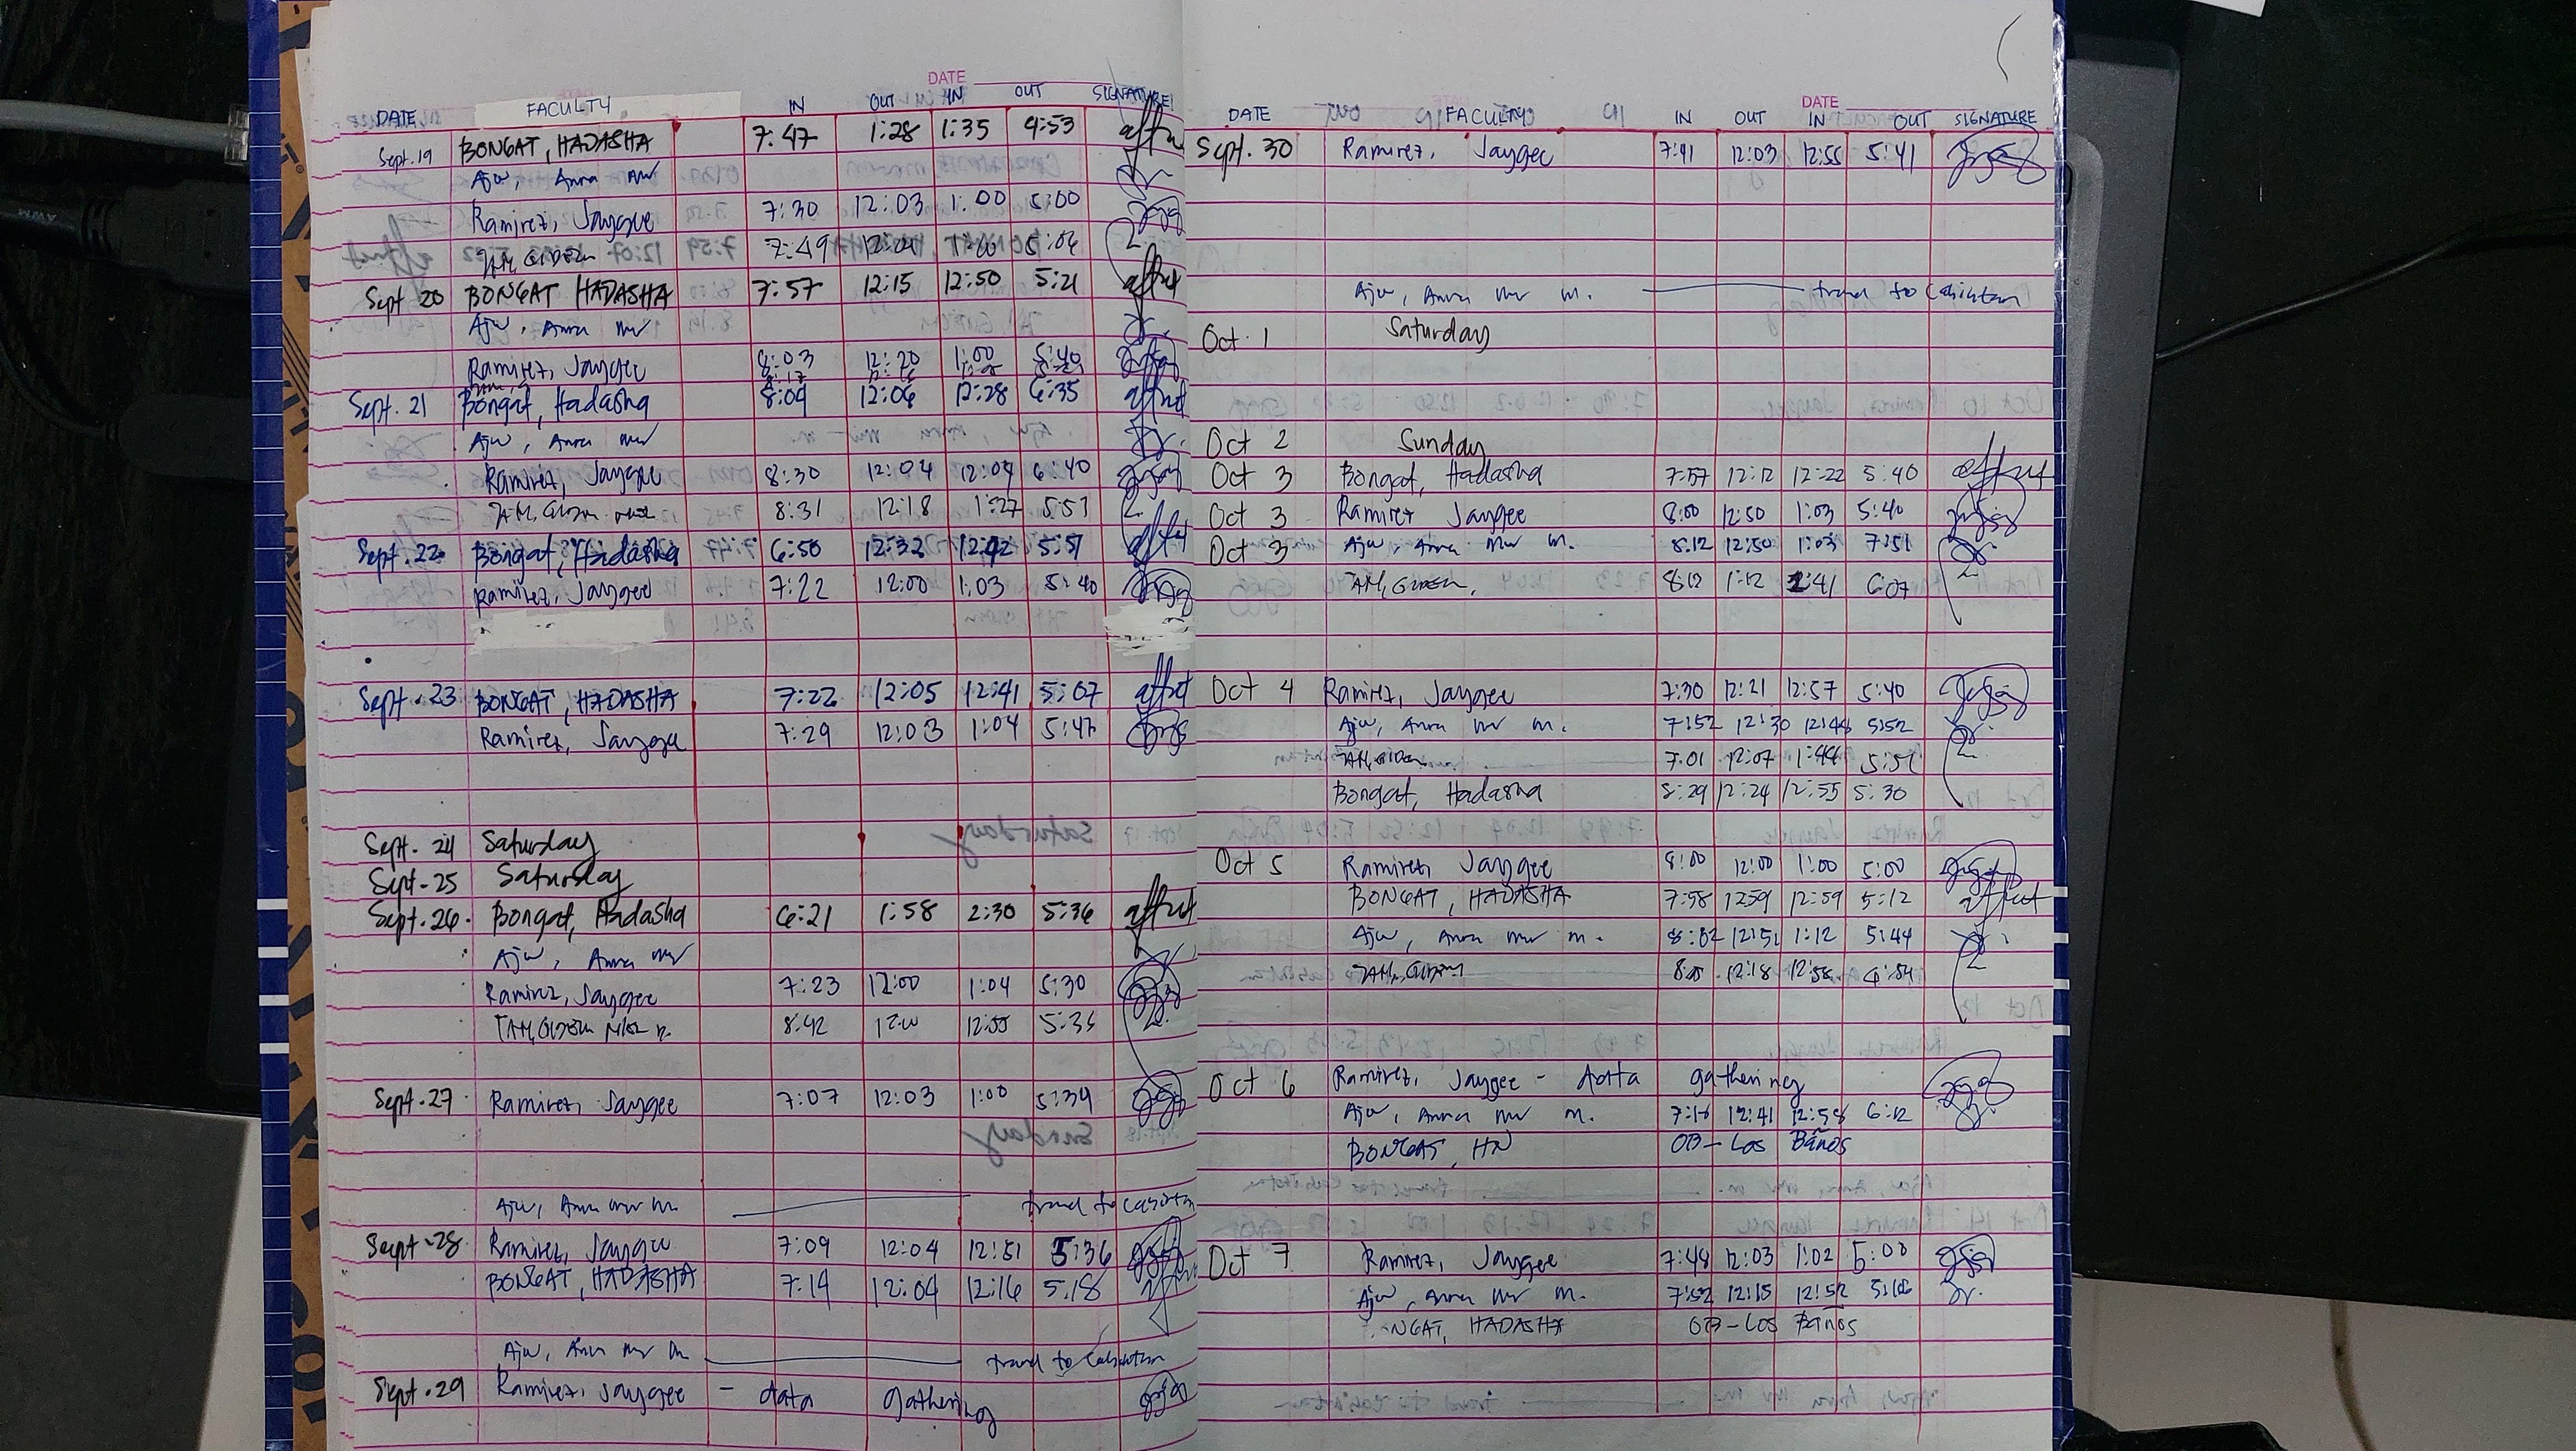 DATE
DATE FACULTY IN OUT IN OUT SIGNATURE
Sept. 19 BONGAT, HADASHA 7:47 1:28 1:35 4:53
Ajw, Anna mw
Ramirez, Jaygee 7:30 12:03 1:00 5:00
7:49
Sept 20 BONGAT HADASHA 7:57 12:15 12:50 5:21
Ajw, Anna mw
Ramirez, Jaygee 8:03 12:20 1:00 5:40
Sept. 21 Bongat, Hadasha 8:09 12:06 12:28 6:35
Ajw, Anna mw
Ramirez, Jaygee 8:30 12:04 12:04 6:40
8:31 12:18 1:27 5:53
Sept. 22 Bongat, Hadasha 6:50 12:32 12:42 5:51
Ramirez, Jaygee 7:22 12:00 1:03 5:40
Sept. 23 BONGAT, HADASHA 7:22 12:05 12:41 5:07
Ramirez, Jaygee 7:29 12:03 1:04 5:47
Sept. 24 Saturday
Sept-25 Saturday
Sept. 26 Bongat, Hadasha 6:21 1:58 2:30 5:36
Ajw, Anna mw
Ramirez, Jaygee 7:23 12:00 1:04 5:30
8:42 12:55 5:35
Sept. 27 Ramirez, Jaygee 7:07 12:03 1:00 5:39
Ajw, Anna mw m. travel to Casiguran
Sept-28 Ramirez, Jaygee 7:09 12:04 12:51 5:36
BONGAT, HADASHA 7:14 12:04 12:16 5:18
Ajw, Anna mw m travel to
Sept. 29 Ramirez, Jaygee - data gathering
DATE
DATE FACULTY IN OUT IN OUT SIGNATURE
Sept. 30 Ramirez, Jaygee 7:41 12:03 12:55 5:41
Ajw, Anna mw m. travel to
Oct 1 Saturday
Oct 2 Sunday
Oct 3 Bongat, Hadasha 7:57 12:12 12:22 5:40
Oct 3 Ramirez Jaygee 8:00 12:50 1:03 5:40
Oct 3 Ajw, Anna mw m. 8:12 12:50 1:03 7:51
8:12 1:12 2:41 6:07
Oct 4 Ramirez, Jaygee 7:30 12:21 12:57 5:40
Ajw, Anna mw m. 7:52 12:30 12:48 5:52
7:01 12:07 1:44 5:51
Bongat, Hadasha 8:29 12:24 12:55 5:30
Oct 5 Ramirez, Jaygee 8:00 12:00 1:00 5:00
BONGAT, HADASHA 7:58 1259 12:59 5:12
Ajw, Anna mw m. 8:02 12:51 1:12 5:44
12:18 12:58
Oct 6 Ramirez, Jaygee - data gathering
Ajw, Anna mw m. 7:18 12:41 12:58 6:12
BONGAT, HN OB - Los Baños
Oct 7 Ramirez, Jaygee 7:48 12:03 1:02 5:00
Ajw, Anna mw m. 7:52 12:15 12:52 5:16
NGAT, HADASHA OB - Los Baños